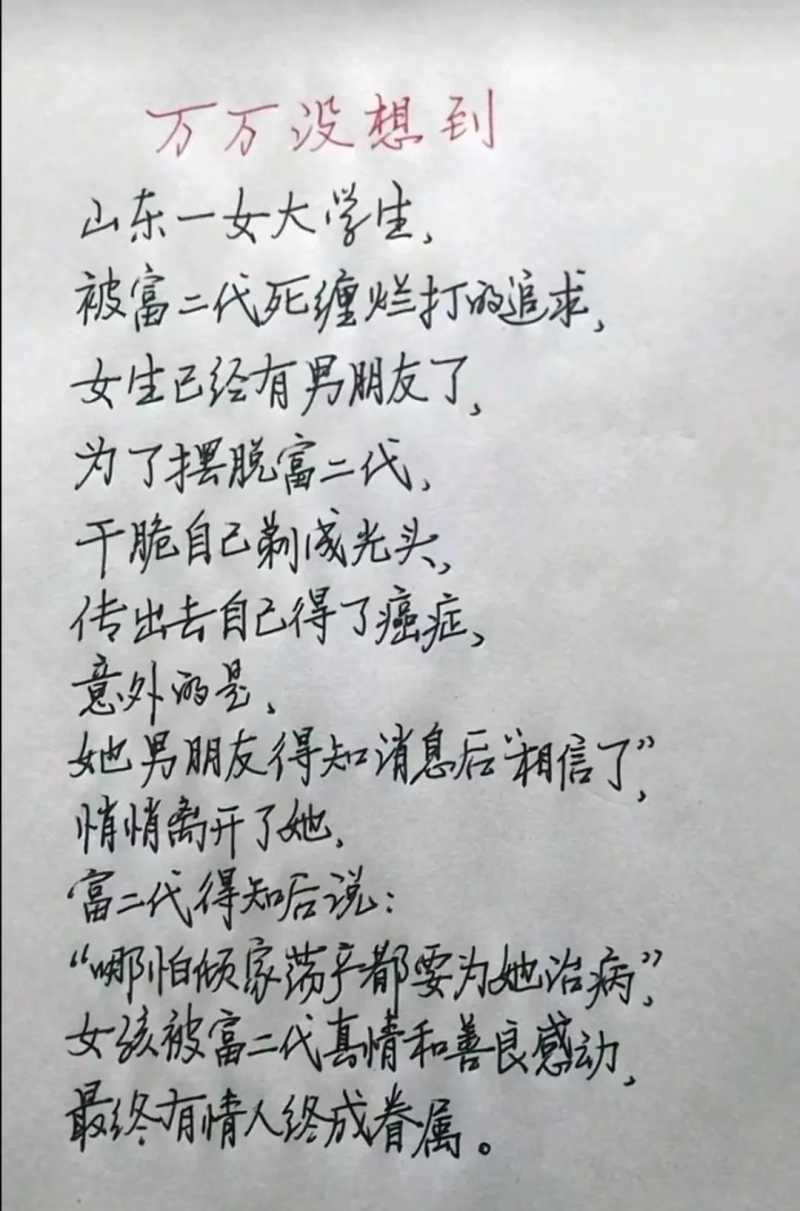 万万没想到
山东一女大学生，
被富二代死缠烂打的追求，
女生已经有男朋友了，
为了摆脱富二代，
干脆自己剃成光头，
传出去自己得了癌症，
意外的是，
她男朋友得知消息后“相信了”，
悄悄离开了她，
富二代得知后说：
“哪怕倾家荡产都要为她治病”，
女孩被富二代真情和善良感动，
最终有情人终成眷属。